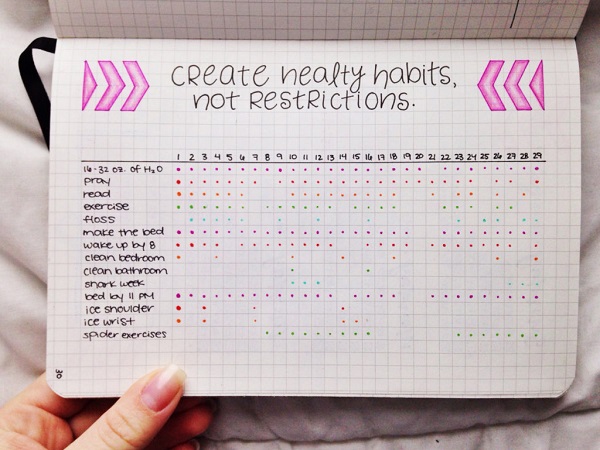 CREATE HEALTY HABITS,
NOT RESTRICTIONS.
1 2 3 4 5 6 7 8 9 10 11 12 13 14 15 16 17 18 19 20 21 22 23 24 25 26 27 28 29
16-32 oz. of H₂O
pray
read
exercise
floss
make the bed
wake up by 8
clean bedroom
clean bathroom
shark week
bed by 11 PM
ice shoulder
ice wrist
spider exercises
30